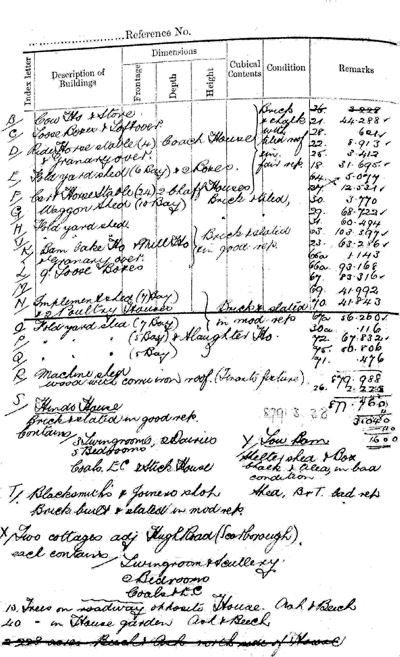 Reference No.
Dimensions
Index letter
Description of Buildings
Frontage
Depth
Height
Cubical Contents
Condition
Remarks
B Cow Ho & Store.
C Loose Boxes & Loft over.
D Ride Horse stable (4) Coach House
& Granary over.
E Fold yard shed (6 Bay) & 2 Boxes.
F Cart Horse Stable (24) 2 Chaff Houses
G Waggon Shed (10 Bay) Brick & tiled,
H Fold yard shed
K Cake Ho & Mill Ho Brick & slated
& Granary over. in good rep.
L 9 Loose Boxes
M
N Implement shed (7 Bay)
& 2 Poultry Houses Brick & slated
O Fold yard shed (7 Bay) in mod rep
P " " (5 Bay) & Slaughter Ho.
Q " " (5 Bay)
R Machine shed
wood with corru iron roof. (Tenants fixture).
Brick
& chalk
with
tiled roof
in
fair rep
26. 2.228
21. 44.288
28. 621
22. 8.913
25. 3.412
18. 31.695
64. 5.077
27. 12.521
30. 3.770
29. 68.722
31. 60.494
63. 103.597
23. 63.286
66a 1.143
66a. 93.168
67 83.316
69. 41.992
70. 41.843
67a 56.260
30a .116
72. 67.832
75. 80.806
71. .476
879.988
26. 2.228
877.760
3.040
1600
8791.3.28
S Hinds House
Brick & slated in good rep.
Contains 2 Livingrooms, 2 Dairies
5 Bedrooms
Coals E.C & Stick House
Y Low Barn
Shelter shed & Box
Chalk & tiled, in bad
condition
Shed, B & T. bad rep
T Blacksmiths & Joiners shop
Brick built & slated in mod rep
X Two cottages adj High Road (Scarborough).
each contains Livingroom & Scullery
2 Bedrooms
Coals & E.C
10. Trees on roadway opposite House. Ash & Beech
40 - in House garden Ash & Beech
2.228 acres Beech & Ash north side of House